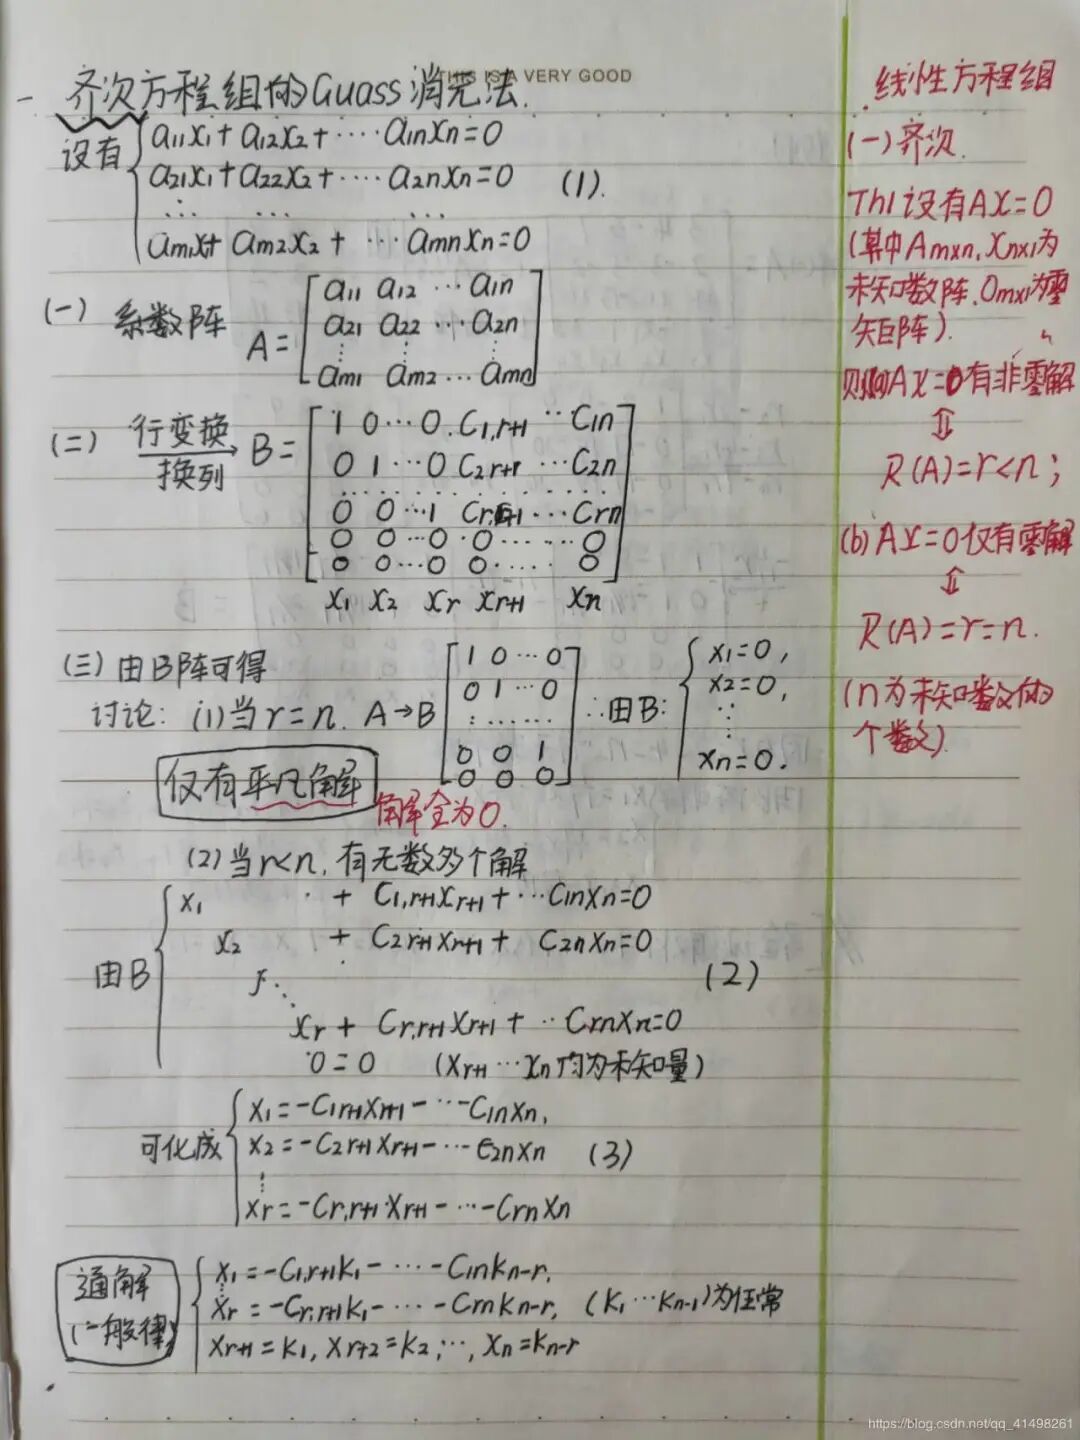 THIS IS A VERY GOOD
一 齐次方程组的Guass消元法.
设有 { a11x1+ a12x2+ ····a1nxn=0
a21x1+a22x2+ ····a2nxn=0 (1).
··· ··· ···
am1x1+ am2x2+ ···amnxn=0
(一) 系数阵 A= [ a11 a12 ···a1n
a21 a22 ···a2n
⋮ ⋮ ⋮
am1 am2 ···amn ]
(二) 行变换 换列 → B= [ 1 0···0 C1,r+1 ··C1n
0 1···0 C2r+1 ···C2n
··············
0 0···1 Cr,r+1···Crn
0 0···0 0······0
0 0···0 0······0 ]
x1 x2 xr xr+1 xn
(三) 由B阵可得
讨论: (1)当r=n. A→B [ 1 0···0
0 1···0
: ······
0 0 1
0 0 0 ] ∴由B: { x1=0,
x2=0,
⋮
xn=0.
仅有平凡解 解全为0.
(2)当r<n, 有无数多个解
由B { x1 · + C1,r+1xr+1+···C1nxn=0
x2 + C2r+1xr+1+ C2nxn=0 (2)
⋱
xr + Cr,r+1xr+1+ ··Crnxn=0
0=0 (xr+1···xn均为未知量)
可化成 { x1=-C1r+1xr+1-···-C1nxn,
x2=-C2r+1xr+1-···C2nxn (3)
⋮
xr=-Cr,r+1xr+1-···-Crnxn
通解
(一般律) { x1=-C1,r+1k1-····-C1nkn-r,
⋮
xr=-Cr,r+1k1-····-Crnkn-r, (k1···kn-1)为任常
xr+1=k1, xr+2=k2,···, xn=kn-r
线性方程组
(一)齐次.
Th1 设有AX=0
(其中Amxn, Xnx1为
未知数阵, 0mx1为零
矩阵).
则(a)AX=0有非零解
⇕
R(A)=r<n;
(b)AX=0仅有零解
⇕
R(A)=r=n.
(n为未知数的
个数).
https://blog.csdn.net/qq_41498261